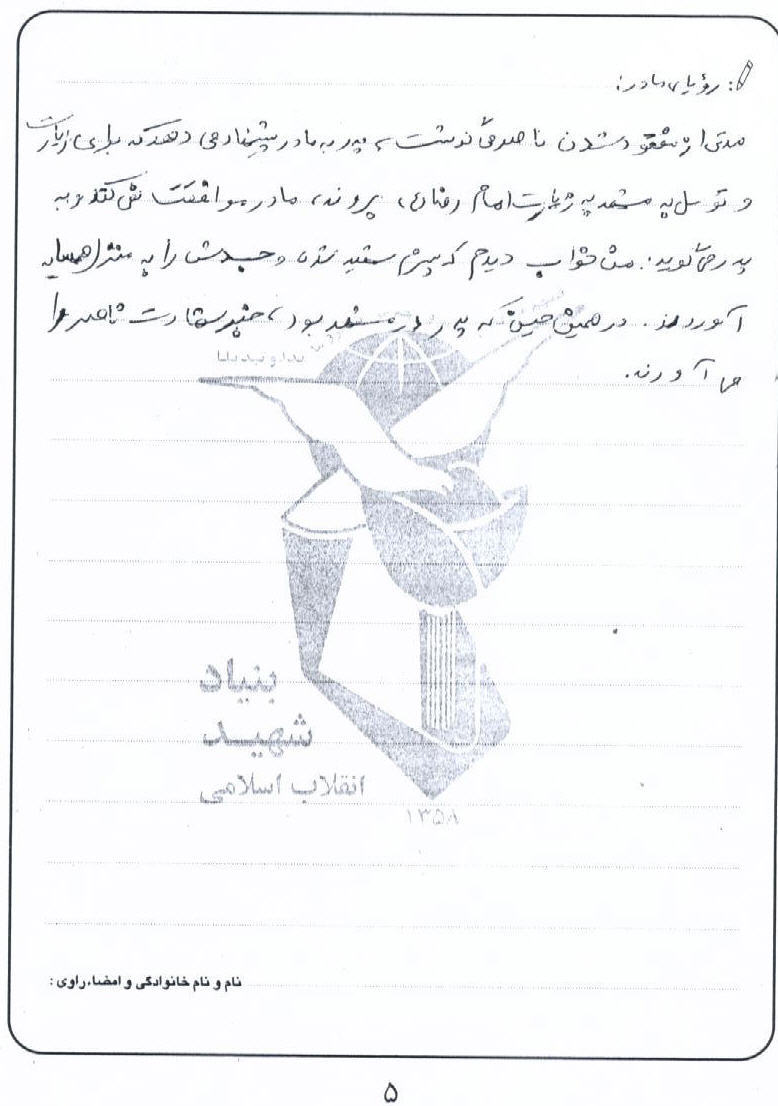 رؤیای مادر:
مدتی از مفقود شدن ناصر می گذشت، پدر به مادر پیشنهاد می دهد که برای زیارت
و توسل به مشهد به زیارت امام رضا (ع) بروند، مادر موافقت نمی کند و به
پدر می گوید: من خواب دیدم که پسرم شهید شده و جسدش را به منزل همسایه
آوردند. در همین حین که پدر در مشهد بود، خبر شهادت ناصر را
می آورند.
بنیاد
شهید
انقلاب اسلامی
۱۳۵۸
نام و نام خانوادگی و امضاء راوی:
۵